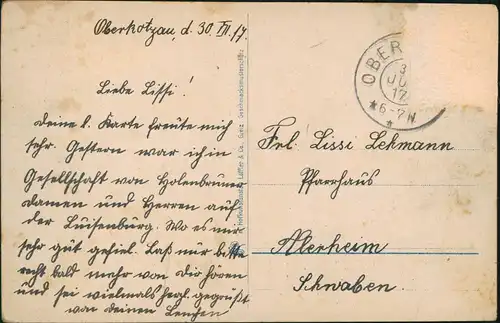 Oberkotzau, d. 30. VII. 17.
Liebe Lissi!
Deine l. Karte freute mich
sehr. Gestern war ich in
Gesellschaft von Holenbrunner
Damen und Herren auf
der Luisenburg. Wo es mir
sehr gut gefiel. Laß nur bitte
recht bald mehr von dir hören
und sei vielmals herzl. gegrüßt
von deinen Lenchen
OBER
3
JU
17
*6-7N
*
Frl. Lissi Lehmann
Pfarrhaus
Alerheim
Schwaben.